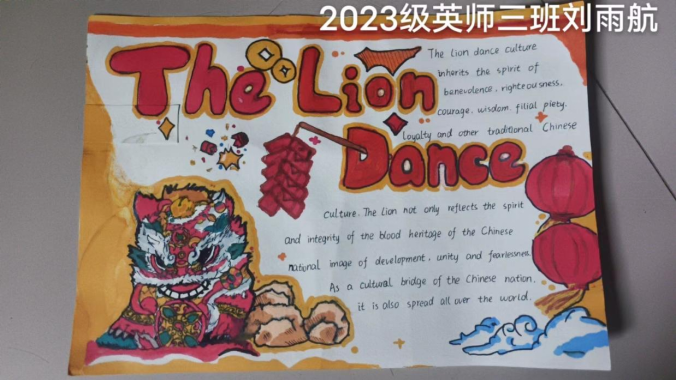 2023级英师三班刘雨航
The Lion
Dance
The lion dance culture
inherits the spirit of
benevolence, righteousness,
courage, wisdom, filial piety,
Loyalty and other traditional Chinese
culture. The Lion not only reflects the spirit
and integrity of the blood heritage of the Chinese
national image of development, unity and fearlessness.
As a cultural bridge of the Chinese nation,
it is also spread all over the world.